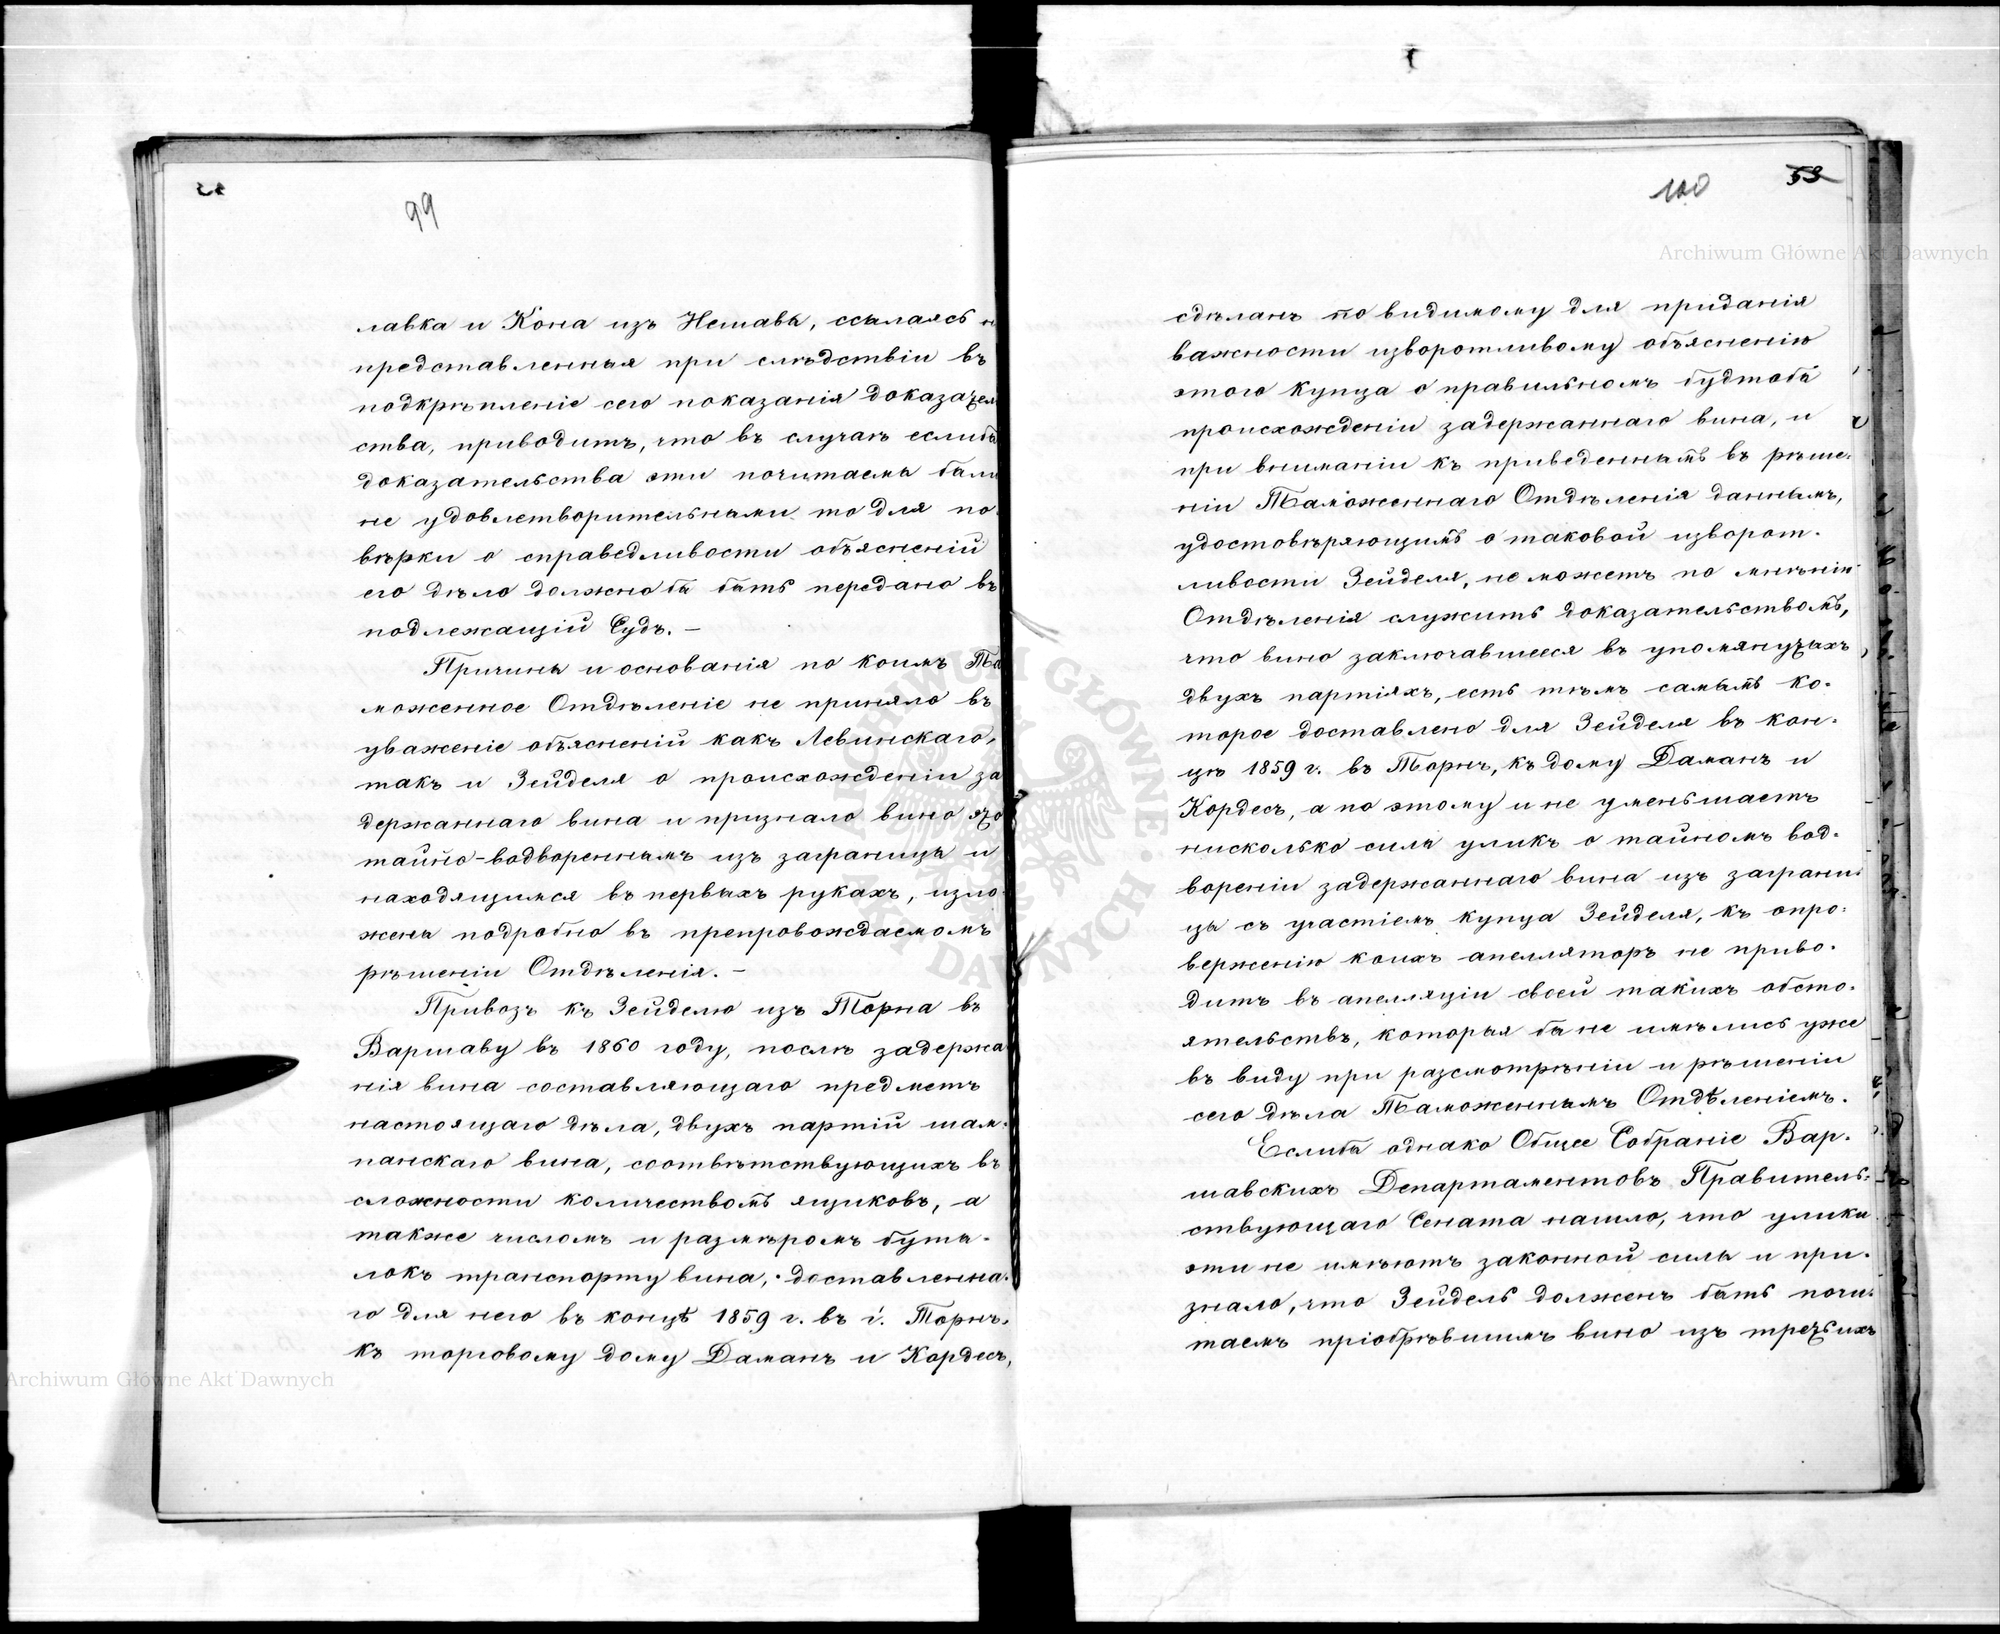 99
лавка и Кона изъ Нешавы, ссылаясь н
представленныя при слѣдствіи въ
подкрѣпленіе сего показанія доказател
ства, приводитъ, что въ случаѣ еслибы
доказательства эти почитаемы были
не удовлетворительными то для по-
вѣрки о справедливости объясненій
его дѣло должно бы быть передано въ
подлежащій Судъ. —
Причины и основанія по коимъ Та
моженное Отдѣленіе не приняло въ
уваженіе объясненій какъ Левинскаго,
такъ и Зейделя о происхожденіи за
держаннаго вина и признало вино это
тайно-водвореннымъ изъ заграницы и
находящимся въ первыхъ рукахъ, изло-
жены подробно въ препровождаемомъ
рѣшеніи Отдѣленія. —
Привозъ къ Зейделю изъ Торна въ
Варшаву въ 1860 году, послѣ задержа
нія вина составляющаго предметъ
настоящаго дѣла, двухъ партій шам-
панскаго вина, соотвѣтствующихъ въ
сложности количествомъ ящиковъ, а
также числомъ и размѣромъ буты-
локъ транспорту вина, доставленна-
го для него въ концѣ 1859 г. въ г. Торнъ.
къ торговому дому Даманъ и Кордесъ,
100
53
сдѣланъ по видимому для приданія
важности изворотливому объясненію
этого купца о правильномъ будтобы
происхожденіи задержаннаго вина, и
при вниманіи къ приведеннымъ въ рѣше-
ніи Таможеннаго Отдѣленія даннымъ,
удостовѣряющимъ о таковой изворот-
ливости Зейделя, не можетъ по мнѣнію
Отдѣленія служить доказательствомъ,
что вино заключавшееся въ упомянутыхъ
двухъ партіяхъ, есть тѣмъ самымъ ко-
торое доставлено для Зейделя въ кон-
цѣ 1859 г. въ Торнъ, къ дому Даманъ и
Кордесъ, а по этому и не уменьшаетъ
нисколько силы уликъ о тайномъ вод-
вореніи задержаннаго вина изъ заграни-
цы съ участіемъ купца Зейделя, къ опро-
верженію коихъ апелляторъ не приво-
дитъ въ апелляціи своей такихъ обсто-
ятельствъ, которыя бы не имѣлись уже
въ виду при разсмотрѣніи и рѣшеніи
сего дѣла Таможеннымъ Отдѣленіемъ.
Еслибы однако Общее Собраніе Вар-
шавскихъ Департаментовъ Правитель-
ствующаго Сената нашло, что улики
эти не имѣютъ законной силы и при-
знало, что Зейдель долженъ быть почи-
таемъ пріобрѣвшимъ вино изъ третьихъ
Archiwum Główne Akt Dawnych
Archiwum Główne Akt Dawnych
ARCHIWUM GŁÓWNE AKT DAWNYCH